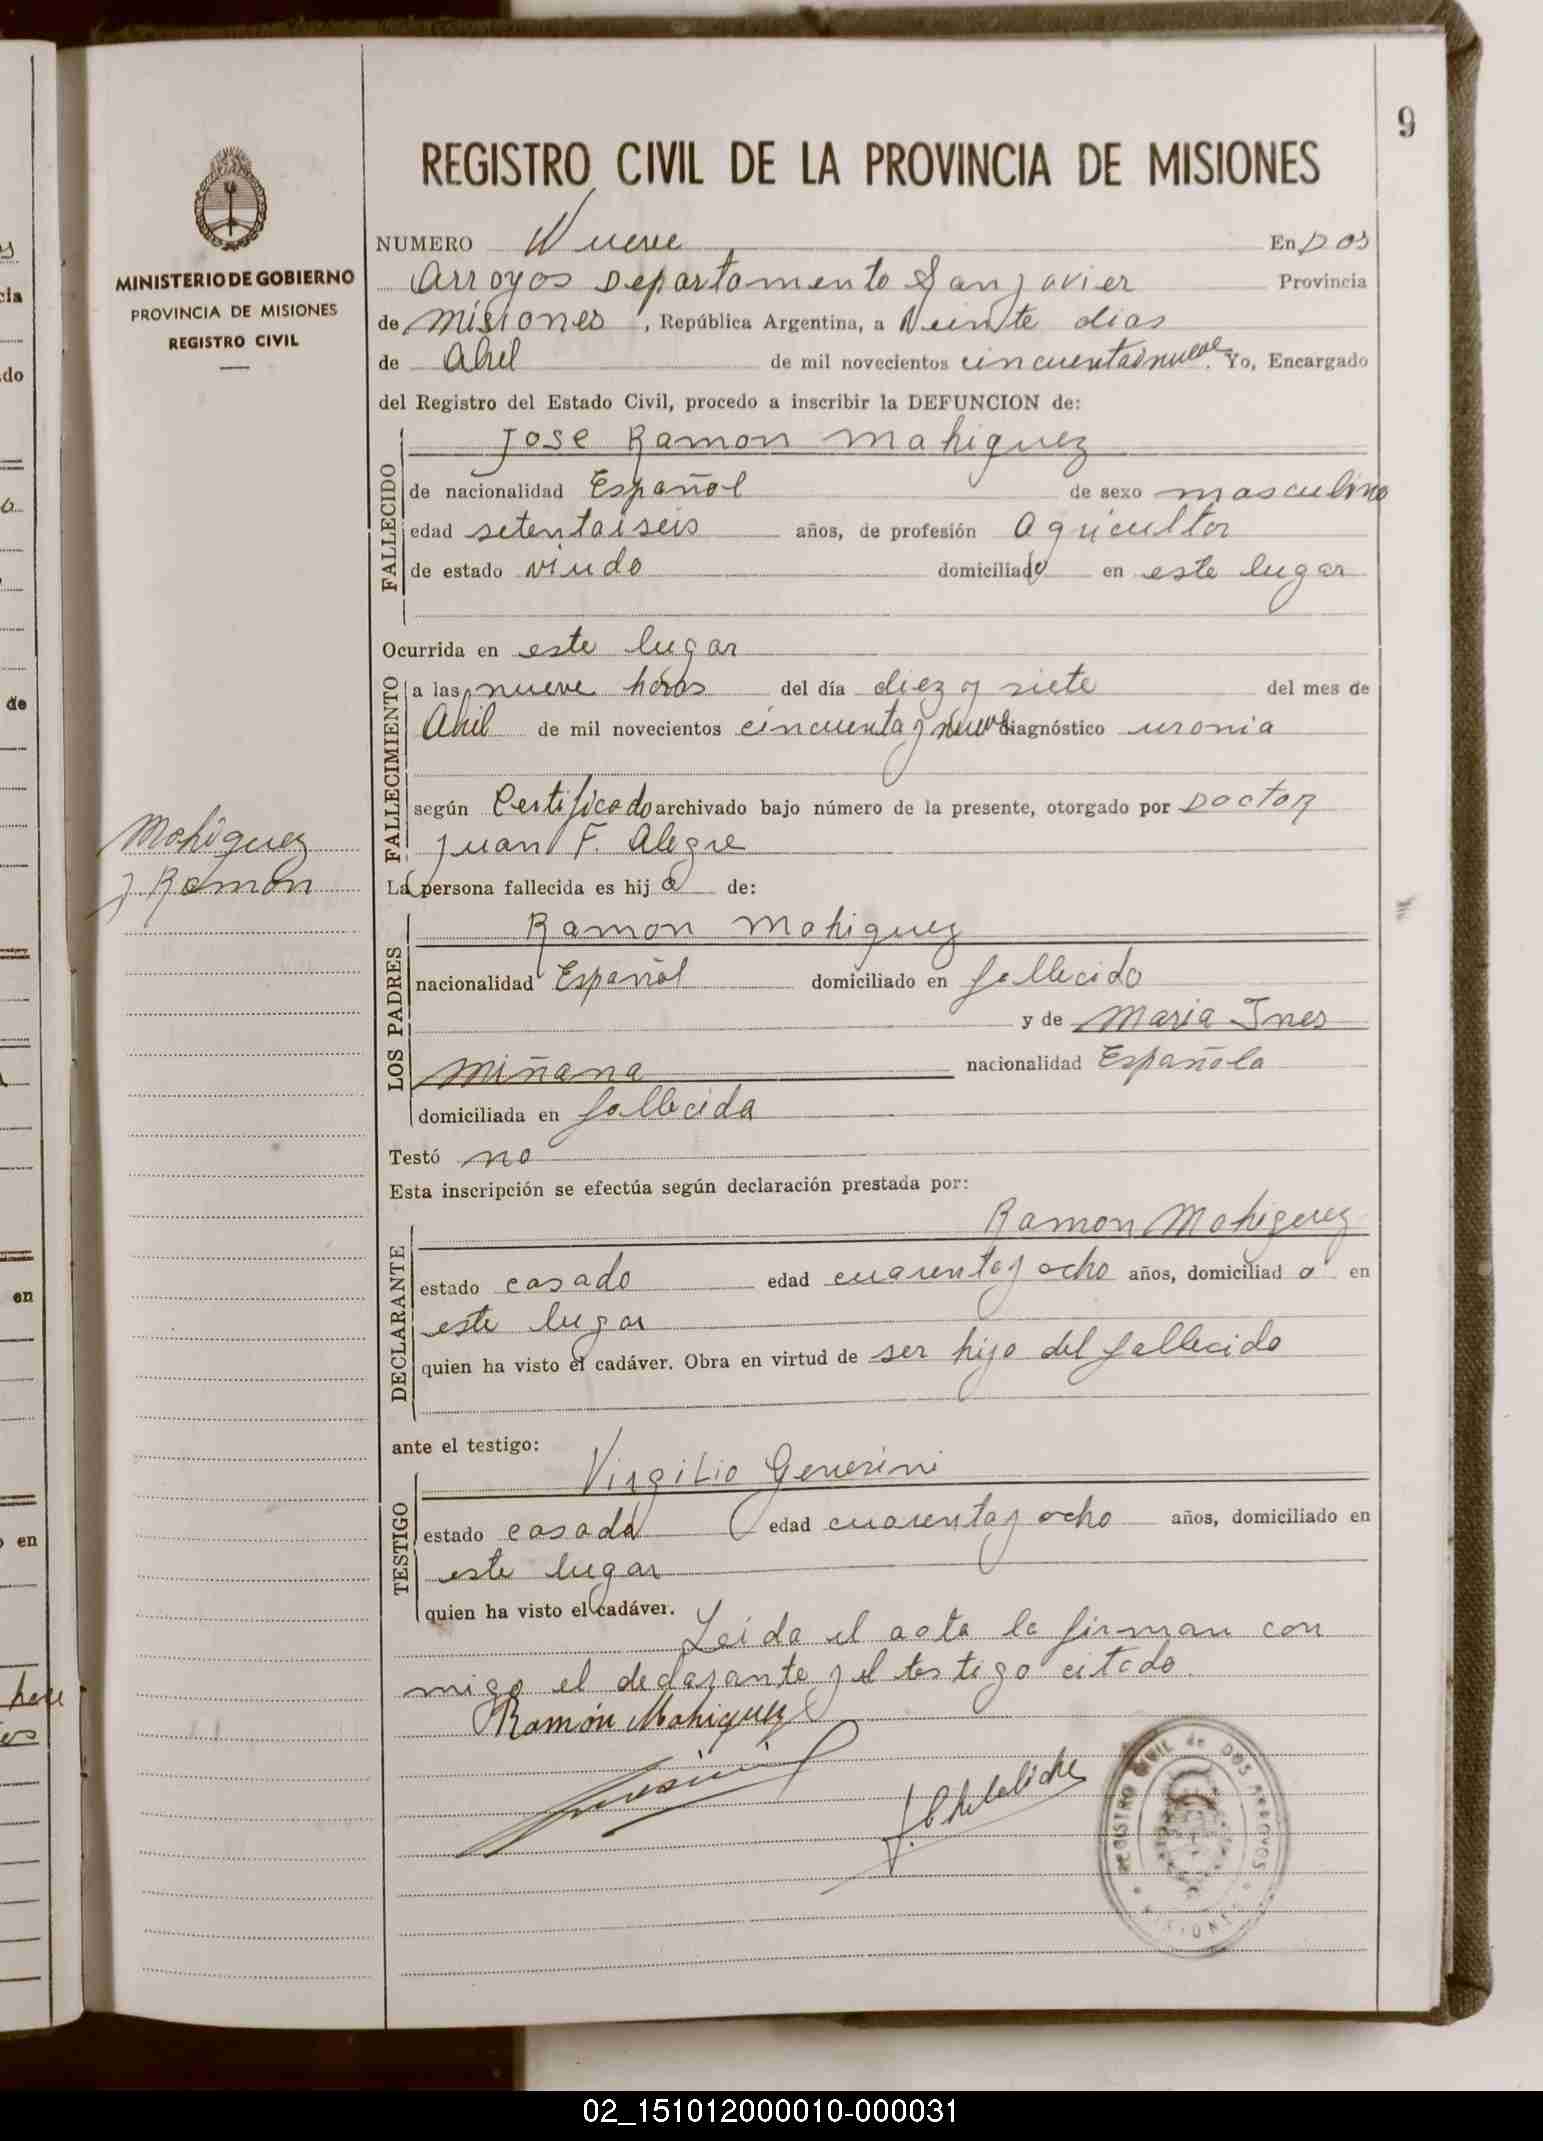 9
REGISTRO CIVIL DE LA PROVINCIA DE MISIONES
MINISTERIO DE GOBIERNO
PROVINCIA DE MISIONES
REGISTRO CIVIL
NUMERO Nueve En Dos
Arroyos Departamento San Javier Provincia
de Misiones, República Argentina, a Veinte dias
de Abril de mil novecientos cincuentainueve. Yo, Encargado
del Registro del Estado Civil, procedo a inscribir la DEFUNCION de:
FALLECIDO
Jose Ramon Mahiquez
de nacionalidad Español de sexo masculino
edad setentaiseis años, de profesión Agricultor
de estado viudo domiciliado en este lugar
Ocurrida en este lugar
FALLECIMIENTO
a las nueve horas del día diez y siete del mes de
Abril de mil novecientos cincuenta y nueve diagnóstico uronia
según Certificado archivado bajo número de la presente, otorgado por Doctor
Juan F. Alegre
Mahiquez
J Ramon
La persona fallecida es hijo de:
LOS PADRES
Ramon Mahiquez
nacionalidad Español domiciliado en fallecido
y de Maria Ines
Miñana nacionalidad Española
domiciliada en fallecida
Testó no
Esta inscripción se efectúa según declaración prestada por:
DECLARANTE
Ramon Mahiquez
estado casado edad cuarenta y ocho años, domiciliado en
este lugar
quien ha visto el cadáver. Obra en virtud de ser hijo del fallecido
ante el testigo:
TESTIGO
Virgilio
estado casado edad cuarenta y ocho años, domiciliado en
este lugar
quien ha visto el cadáver.
Leida el acta la firman con
migo el declarante y el testigo citado.
Ramón Mahiquez
REGISTRO CIVIL de DOS ARROYOS
MISIONES
02_151012000010-000031